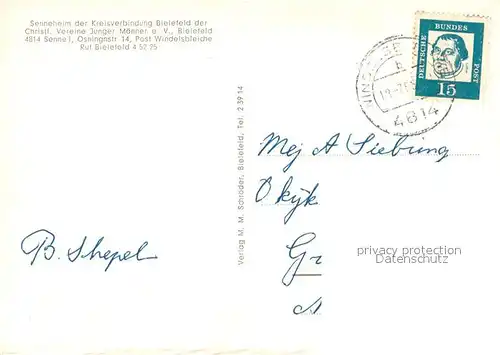 Senneheim der Kreisverbindung Bielefeld der
Christl. Vereine Junger Männer e. V., Bielefeld
4814 Senne I, Osningstr. 14, Post Windelsbleiche
Ruf Bielefeld 4 52 25
DEUTSCHE
BUNDES
POST
15
b
4814
Verlag M. M. Schröder, Bielefeld, Tel. 2 39 14
Mej A Siebung
B. Shepel
privacy protection
Datenschutz